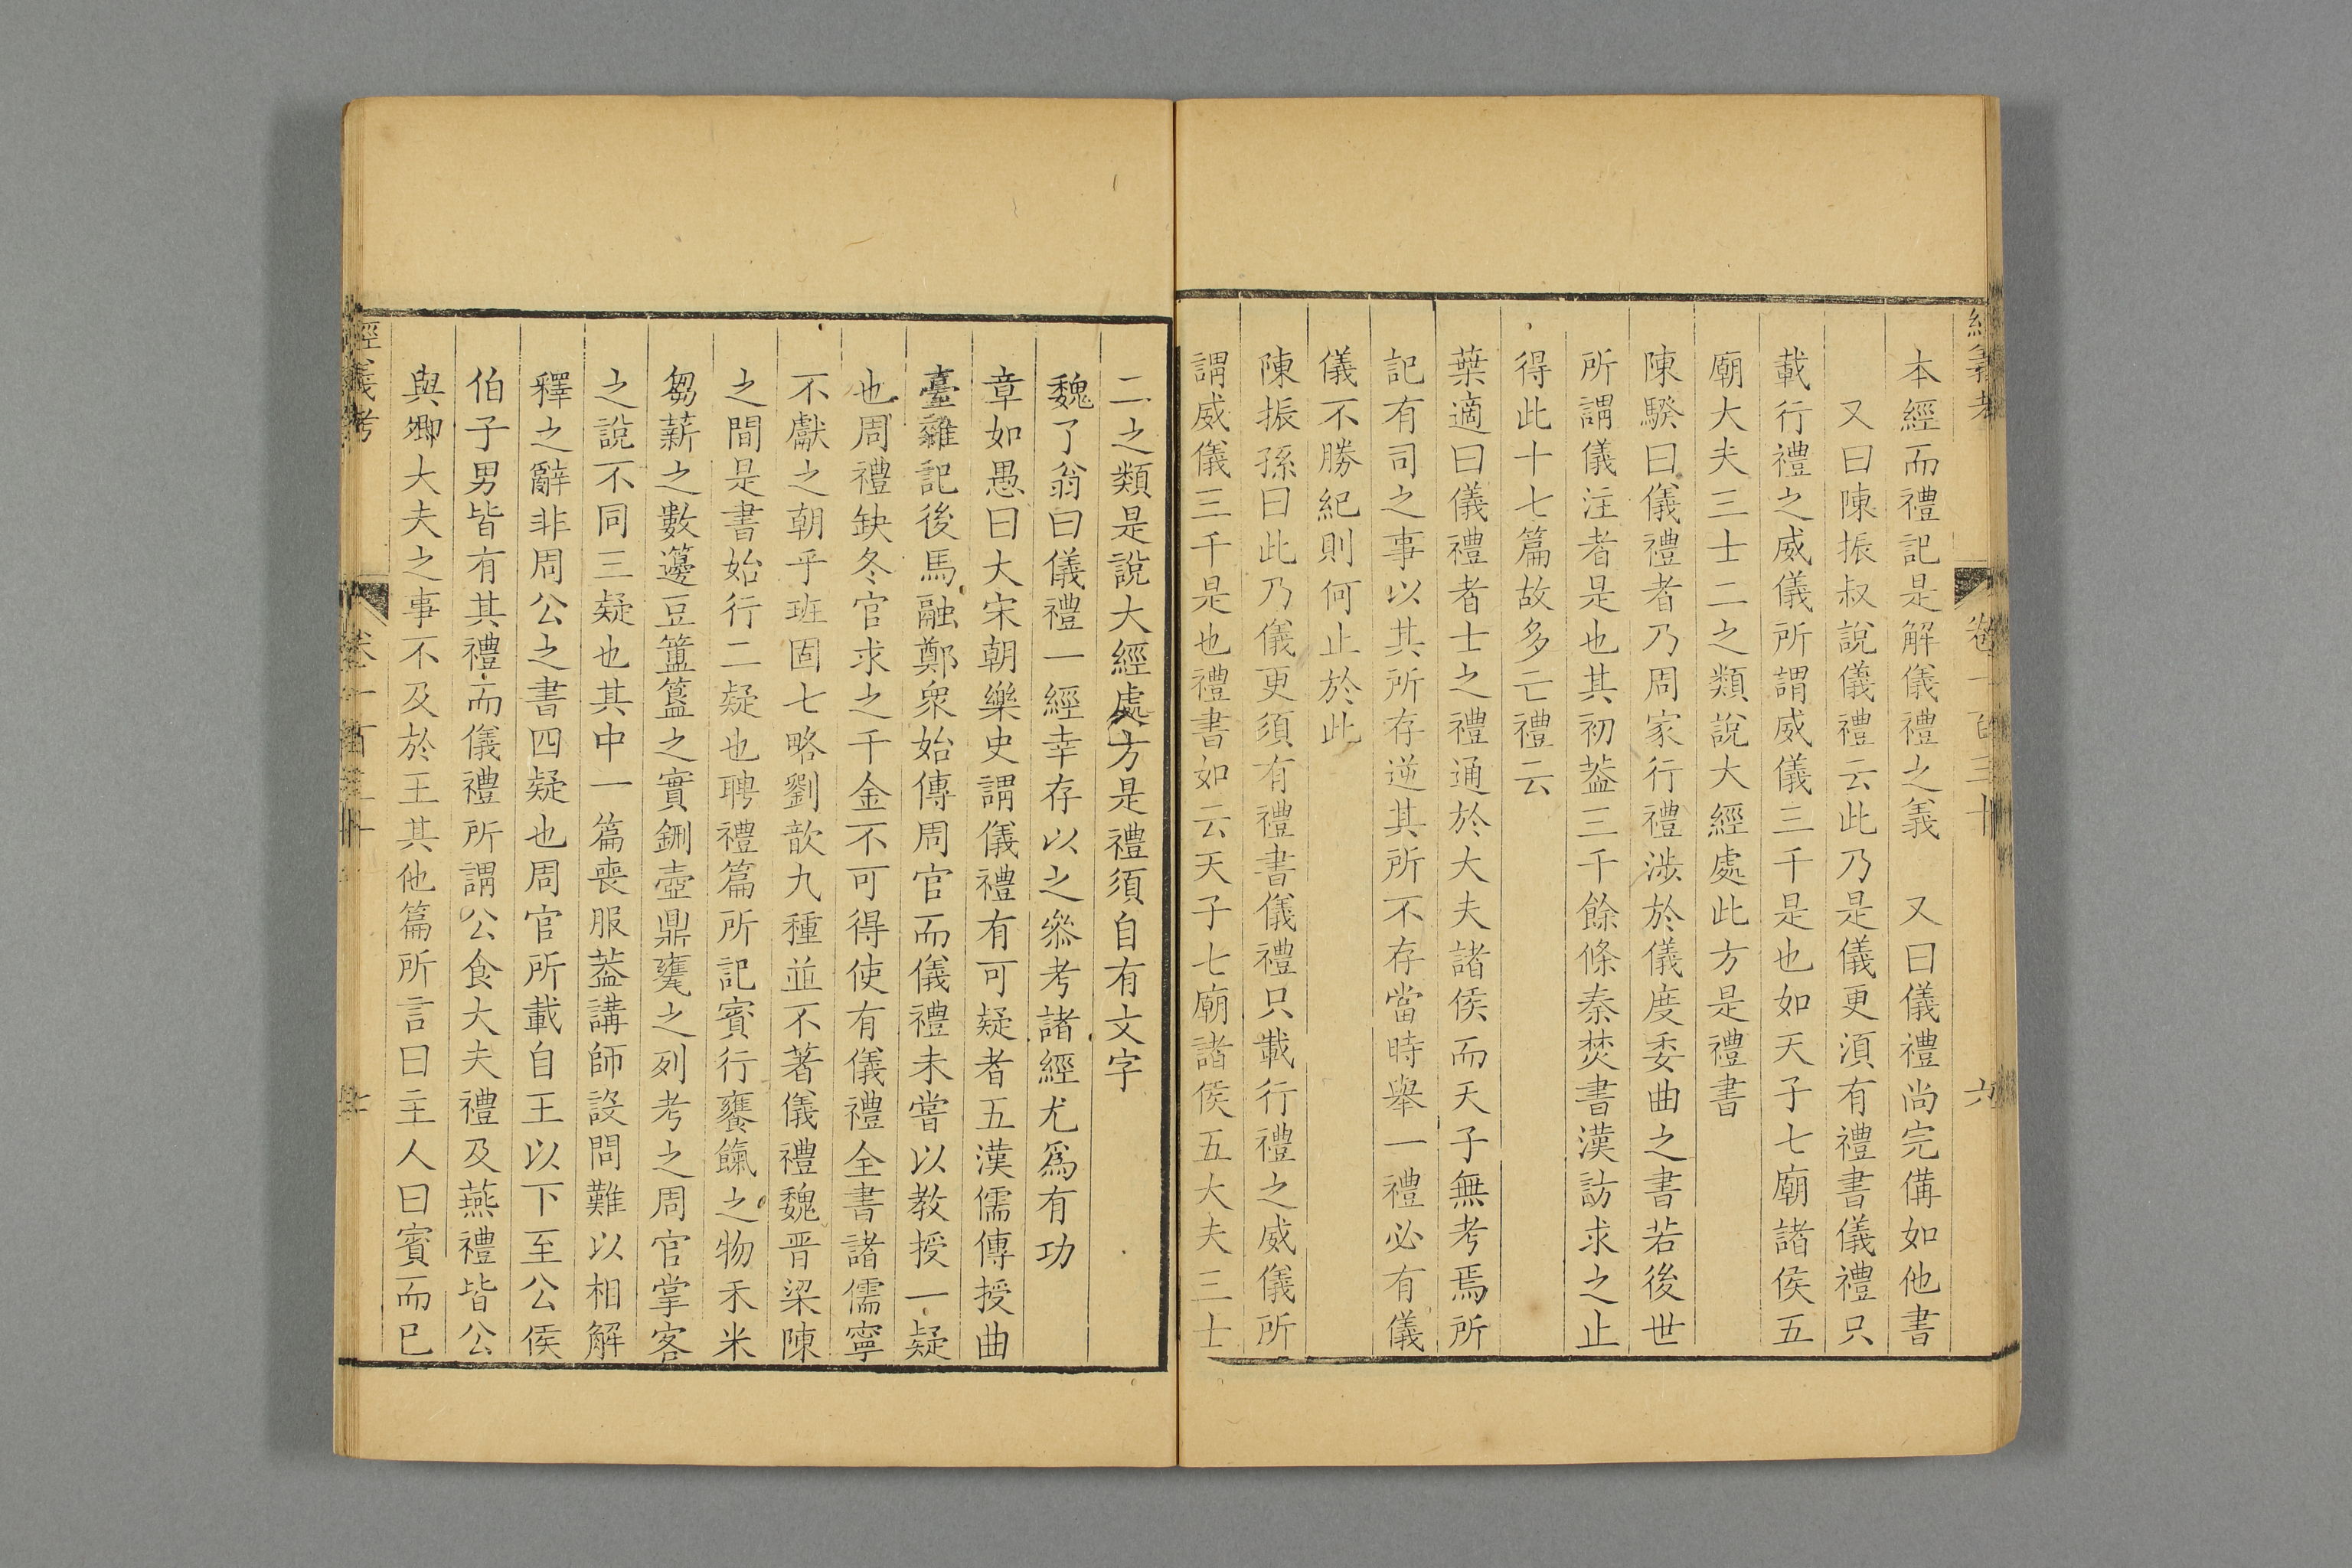 經義考 卷一百三十 六
本經而禮記是解儀禮之義 又曰儀禮尚完備如他書
又曰陳振叔說儀禮云此乃是儀更須有禮書儀禮只
載行禮之威儀所謂威儀三千是也如天子七廟諸侯五
廟大夫三士二之類說大經處此方是禮書
陳騤曰儀禮者乃周家行禮涉於儀度委曲之書若後世
所謂儀注者是也其初葢三千餘條秦焚書漢訪求之止
得此十七篇故多亡禮云
葉適曰儀禮者士之禮通於大夫諸侯而天子無考焉所
記有司之事以其所存逆其所不存當時舉一禮必有儀
儀不勝紀則何止於此
陳振孫曰此乃儀更須有禮書儀禮只載行禮之威儀所
謂威儀三千是也禮書如云天子七廟諸侯五大夫三士
二之類是說大經處方是禮須自有文字
魏了翁曰儀禮一經幸存以之叅考諸經尤爲有功
章如愚曰大宋朝樂史謂儀禮有可疑者五漢儒傳授曲
臺雜記後馬融鄭衆始傳周官而儀禮未嘗以教授一疑
也周禮缺冬官求之千金不可得使有儀禮全書諸儒寧
不獻之朝乎班固七略劉歆九種並不著儀禮魏晋梁陳
之間是書始行二疑也聘禮篇所記賓行饔餼之物禾米
芻薪之數籩豆簠簋之實鉶壺鼎甕之列考之周官掌客
之說不同三疑也其中一篇喪服葢講師設問難以相解
釋之辭非周公之書四疑也周官所載自王以下至公侯
伯子男皆有其禮而儀禮所謂公食大夫禮及燕禮皆公
與卿大夫之事不及於王其他篇所言曰主人曰賓而已
經義考 卷一百三十 七